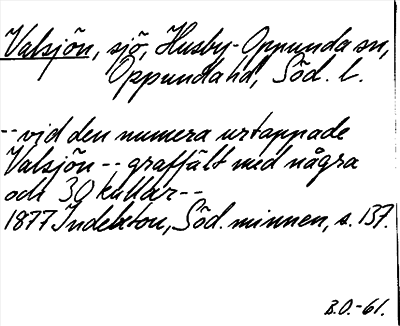 Valsjön, sjö, Husby-Oppunda sn,
Oppunda hd, Söd. l.
-- vid den numera urtappade
Valsjön -- graffält med några
och 30 kullar --
1877 Indebetou, Söd. minnen, s. 137.
B.O.-61.